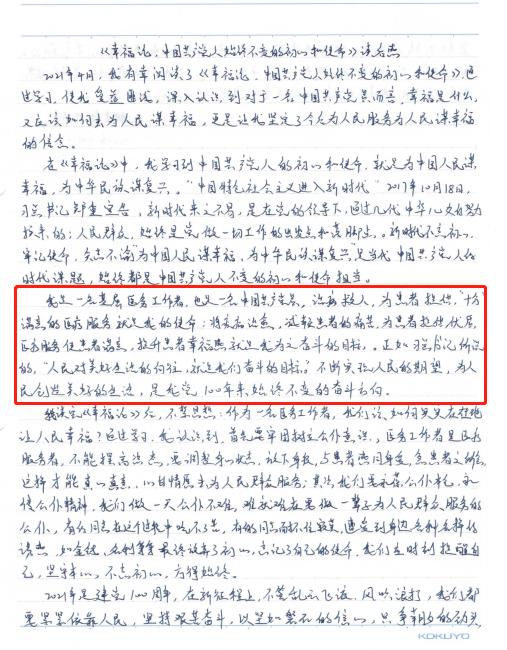 《幸福论：中国共产党人始终不变的初心和使命》读后感
2021年4月，我有幸阅读了《幸福论：中国共产党人始终不变的初心和使命》，通
过学习，使我受益匪浅，深入认识到对于一名中国共产党员而言，幸福是什么，
又应该如何去为人民谋幸福，更是让我坚定了今后为人民服务为人民谋幸福
的信念。
在《幸福论》中，我学习到中国共产党人的初心和使命，就是为中国人民谋
幸福，为中华民族谋复兴。"中国特色社会主义进入新时代"2017年10月18日，
习总书记郑重宣告，新时代来之不易，是在党的领导下，通过几代中华儿女努力
接来的；人民群众，始终是党做一切工作的出发点和落脚点。新时代不忘初心、
牢记使命，矢志不渝"为中国人民谋幸福，为中华民族谋复兴"是当代中国共产党人的
时代课题，始终都是中国共产党人不变的初心和使命担当。
我是一名基层医务工作者，也是一名中国共产党员，治病救人，为患者提供十分
满意的医疗服务就是我的使命；将疾病治愈，减轻患者的痛苦，为患者提供优质
医疗服务使患者满意，提升患者幸福感就是我为之奋斗的目标。正如习总书记所说
的，"人民对美好生活的向往，就是我们奋斗的目标。"不断实现人民的期望，为人
民创造美好的生活，是我党100年来始终不变的奋斗方向。
我读完《幸福论》后，不禁思想：作为一名医务工作者，我们该如何实实在在地
让人民幸福？通过学习，我认识到，首先要牢固树立公仆意识，医务工作者是医疗
服务者，不能提高姿态，要调整身心状态，放下身段，与患者感同身受，急患者之所急，
这样才能真心真意、心甘情愿去为人民群众服务；其次，我们要永葆公仆本色，永
传公仆精神，我们做一天公仆不难，难就难在要做一辈子为人民群众服务的
公仆，有的同志在这个过程中吃不了苦，有的同志耐不住寂寞，遭受到身边各种各样的
诱惑，如金钱、名利等等最终放弃了初心，忘记了自己的使命，我们应时刻提醒自
己，坚守本心，不忘初心，方得始终。
2021年是建党100周年，在新征程上，不管乱云飞渡、风吹浪打，我们都
要紧紧依靠人民，坚持艰苦奋斗，以坚如磐石的信心，只争朝夕的劲头
KOKUYO